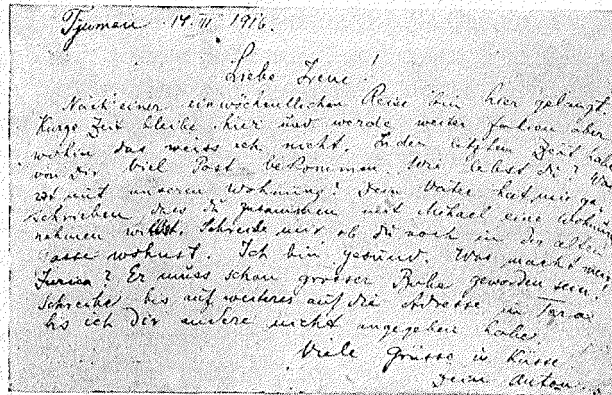 Tjumen 14.III 1916.
Liebe Irene!
Nach einer einwöchentlichen Reise bin hier gelangt
Kurze Zeit bleibe hier und werde weiter fahren aber
wohin das weiss ich nicht. In der letzten Zeit habe
von dir viel Post bekommen. Wie lebst du? Was
ist mit unseren Wohnung? Dein Vater hat mir ge-
schrieben dass du zusammen mit Mihael eine Wohnung
nehmen willst. Schreibe mir ob du noch in der alten
Gasse wohnst. Ich bin gesund. Was macht mein
Jurica? Er muss schon grosser Bube geworden sein.
Schreibe bis auf weiteres auf die Adresse in Tara
bis ich Dir andere nicht angegeben habe.
Viele Grüsse u Küsse
Dein Anton